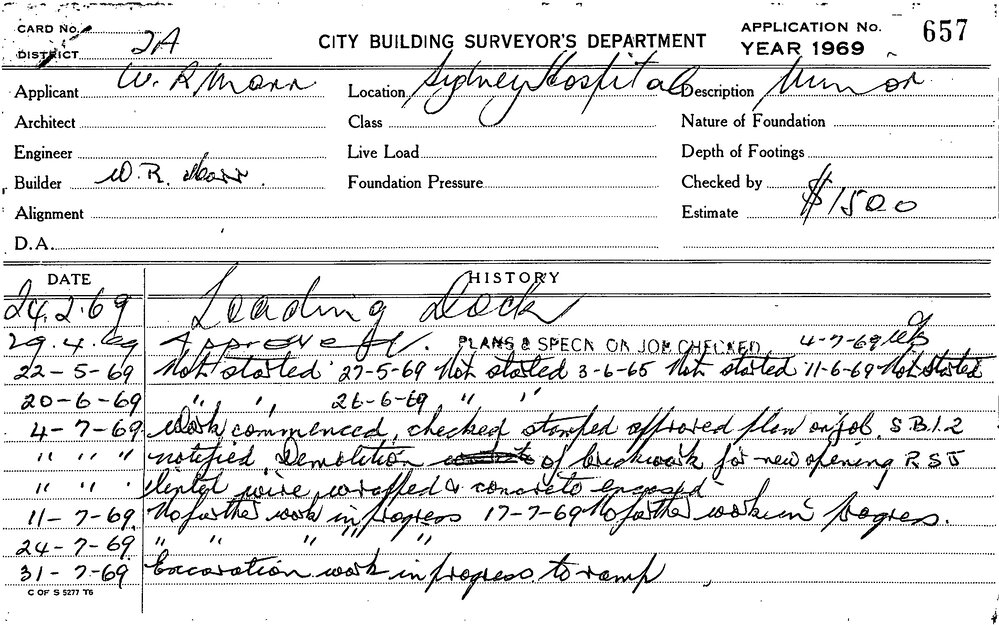 CARD No. APPLICATION No. 657
DISTRICT 2A CITY BUILDING SURVEYOR'S DEPARTMENT YEAR 1969
Applicant W. R Marr Location Sydney Hospital Description Minor
Architect Class Nature of Foundation
Engineer Live Load Depth of Footings
Builder W. R. Marr. Foundation Pressure Checked by
Alignment Estimate $1500
D.A.
DATE HISTORY
24.2.69 Loading Dock
29.4.69 Approved. PLANS & SPECN ON JOB CHECKED 4-7-69
22-5-69 Not started 27-5-69 Not started 3-6-65 Not started 11-6-69 Not started
20-6-69 " " 26-6-69 " "
4-7-69 Work commenced, checked stamped approved plan on job. S.B.I.2
" " " notified. Demolition of brickwork for new opening RSJ
" " " lintel wire wrapped & concrete encased
11-7-69. No further work in progress 17-7-69 No further work in progress.
24-7-69 " " " " "
31-7-69 Excavation work in progress to ramp
C OF S 5277 T6